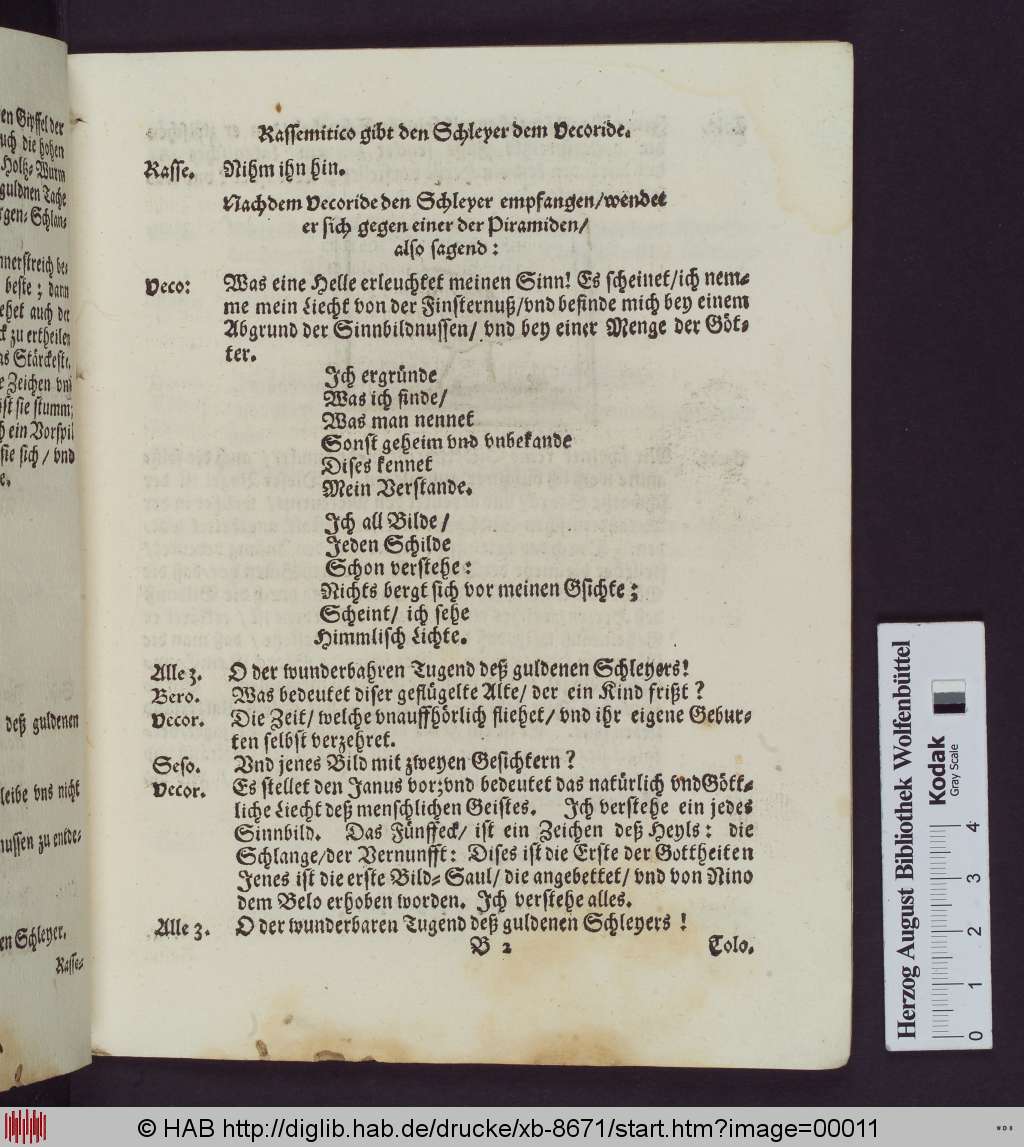 en Gipffel der
uch die hohen
Holtz-Wurm
guldnen Tache
rgen-Schlan-
nnerstreich be-
beste; dann
ehet auch der
ck zu ertheilen
as Stärckeste.
e Zeichen vnd
öst sie stumm;
h ein Vorspil
sie sich / vnd
e.
deß guldenen
leibe vns nicht
nussen zu entde-
en Schleyer.
Rasse-
Rassemitico gibt den Schleyer dem Vecoride.
Rasse. Nihm ihn hin.
Nachdem Vecoride den Schleyer empfangen/wendet
er sich gegen einer der Piramiden/
also sagend:
Veco: Was eine Helle erleuchtet meinen Sinn! Es scheinet/ich nem-
me mein Liecht von der Finsternuß/vnd befinde mich bey einem
Abgrund der Sinnbildnussen/ vnd bey einer Menge der Göt-
ter.
Ich ergründe
Was ich finde/
Was man nennet
Sonst geheim vnd vnbekande
Dises kennet
Mein Verstande.
Ich all Bilde/
Jeden Schilde
Schon verstehe:
Nichts bergt sich vor meinen Gsichte;
Scheint/ ich sehe
Himmlisch Lichte.
Alle 3. O der wunderbahren Tugend deß guldenen Schleyers!
Bero. Was bedeutet diser geflügelte Alte/ der ein Kind frißt?
Vecor. Die Zeit/ welche vnauffhörlich fliehet/ vnd ihr eigene Gebur-
ten selbst verzehret.
Seso. Vnd jenes Bild mit zweyen Gesichtern?
Vecor. Es stellet den Janus vor; vnd bedeutet das natürlich vnd Gött-
liche Liecht deß menschlichen Geistes. Ich verstehe ein jedes
Sinnbild. Das Fünffeck/ ist ein Zeichen deß Heyls: die
Schlange/der Vernunfft: Dises ist die Erste der Gottheiten
Jenes ist die erste Bild-Saul/ die angebettet/ vnd von Nino
dem Belo erhoben worden. Ich verstehe alles.
Alle 3. O der wunderbaren Tugend deß guldenen Schleyers!
B 2 Tolo.
Herzog August Bibliothek Wolfenbüttel
Kodak
Gray Scale
0 1 2 3 4
© HAB http://diglib.hab.de/drucke/xb-8671/start.htm?image=00011